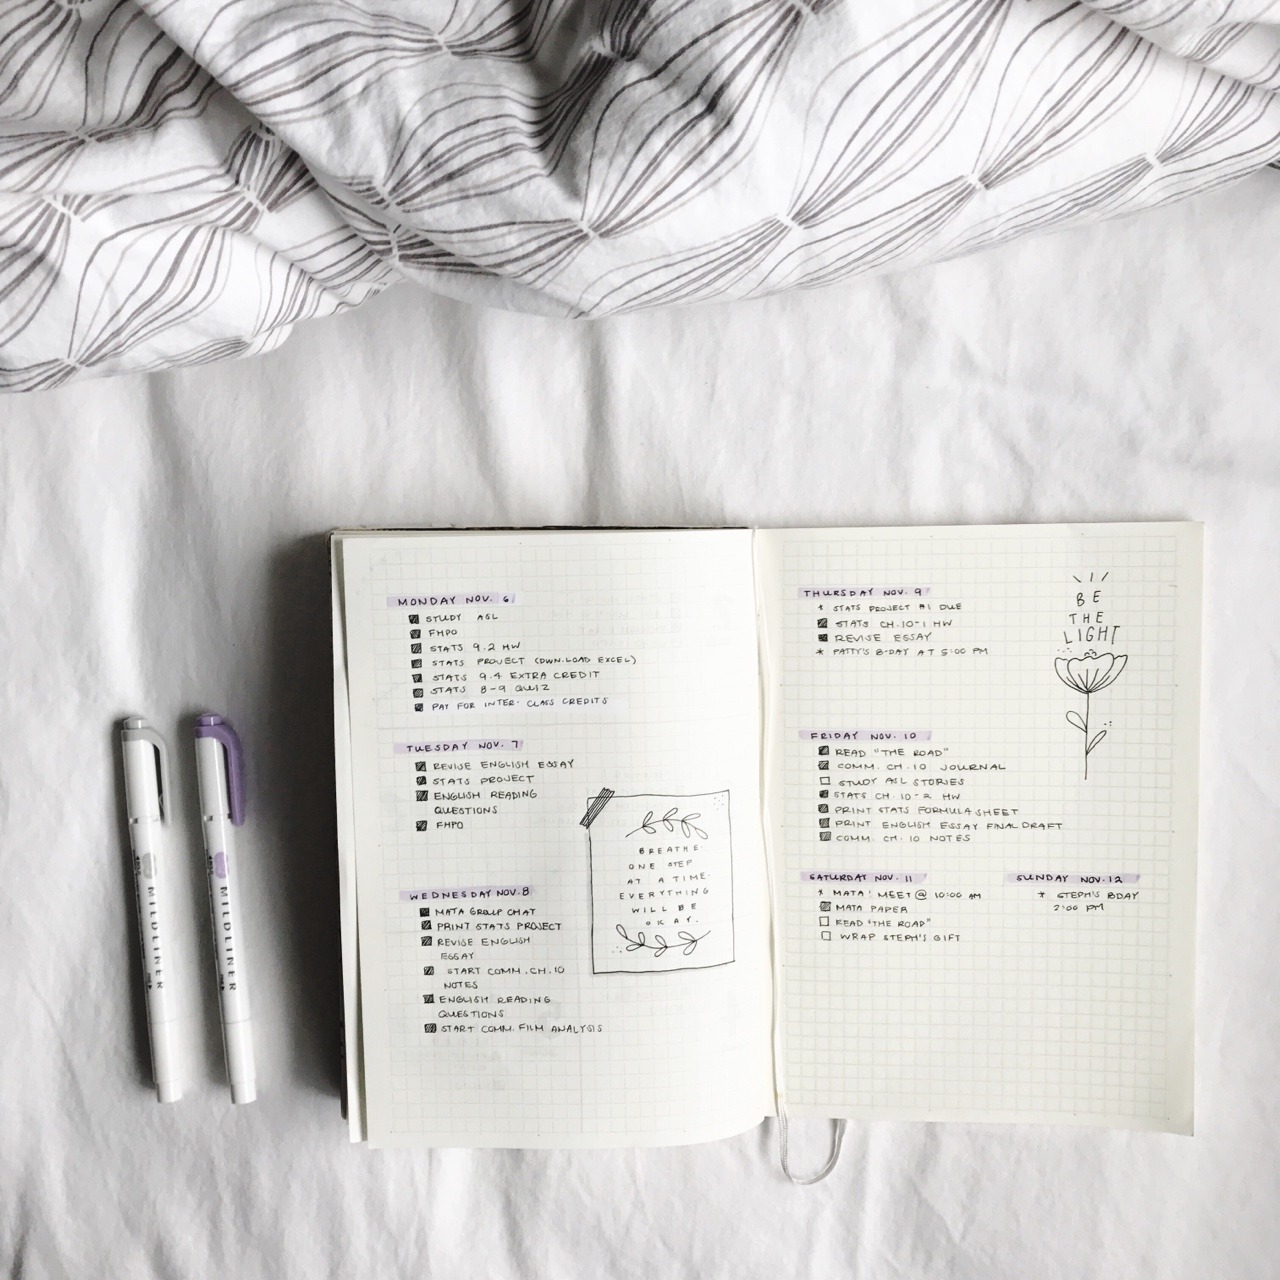 MONDAY NOV. 6
STUDY ASL
FHPO
STATS 9.2 HW
STATS PROJECT (DWN.LOAD EXCEL)
STATS 9.4 EXTRA CREDIT
STATS 8-9 QUIZ
PAY FOR INTER. CLASS CREDITS
TUESDAY NOV. 7
REVISE ENGLISH ESSAY
STATS PROJECT
ENGLISH READING
QUESTIONS
FHPO
WEDNESDAY NOV. 8
MATA GROUP CHAT
PRINT STATS PROJECT
REVISE ENGLISH
ESSAY
START COMM. CH. 10
NOTES
ENGLISH READING
QUESTIONS
START COMM. FILM ANALYSIS
BREATHE.
ONE STEP
AT A TIME.
EVERYTHING
WILL BE
OKAY.
THURSDAY NOV. 9
* STATS PROJECT #1 DUE
STATS CH. 10-1 HW
REVISE ESSAY
* PATTY'S B-DAY AT 5:00 PM
BE
THE
LIGHT
FRIDAY NOV. 10
READ "THE ROAD"
COMM. CH. 10 JOURNAL
STUDY ASL STORIES
STATS CH. 10-2 HW
PRINT STATS FORMULA SHEET
PRINT ENGLISH ESSAY FINAL DRAFT
COMM. CH. 10 NOTES
SATURDAY NOV. 11
* MATA! MEET @ 10:00 AM
MATA PAPER
READ "THE ROAD"
WRAP STEPH'S GIFT
SUNDAY NOV. 12
* STEPH'S BDAY
2:00 PM
MILDLINER
MILDLINER